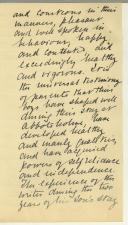 and courteous in their
manners, pleasant
and well spoken in
behaviour, happy
and contented and
exceedingly healthy
and vigorous. It is
the universal testimony
of parents that their
boys have shaped well
during their stay at
Abbotsholme, have
developed healthy
and manly qualities,
and have acquired
powers of self reliance
and independence.
The experience of the
writer during the two
years of his son's stay